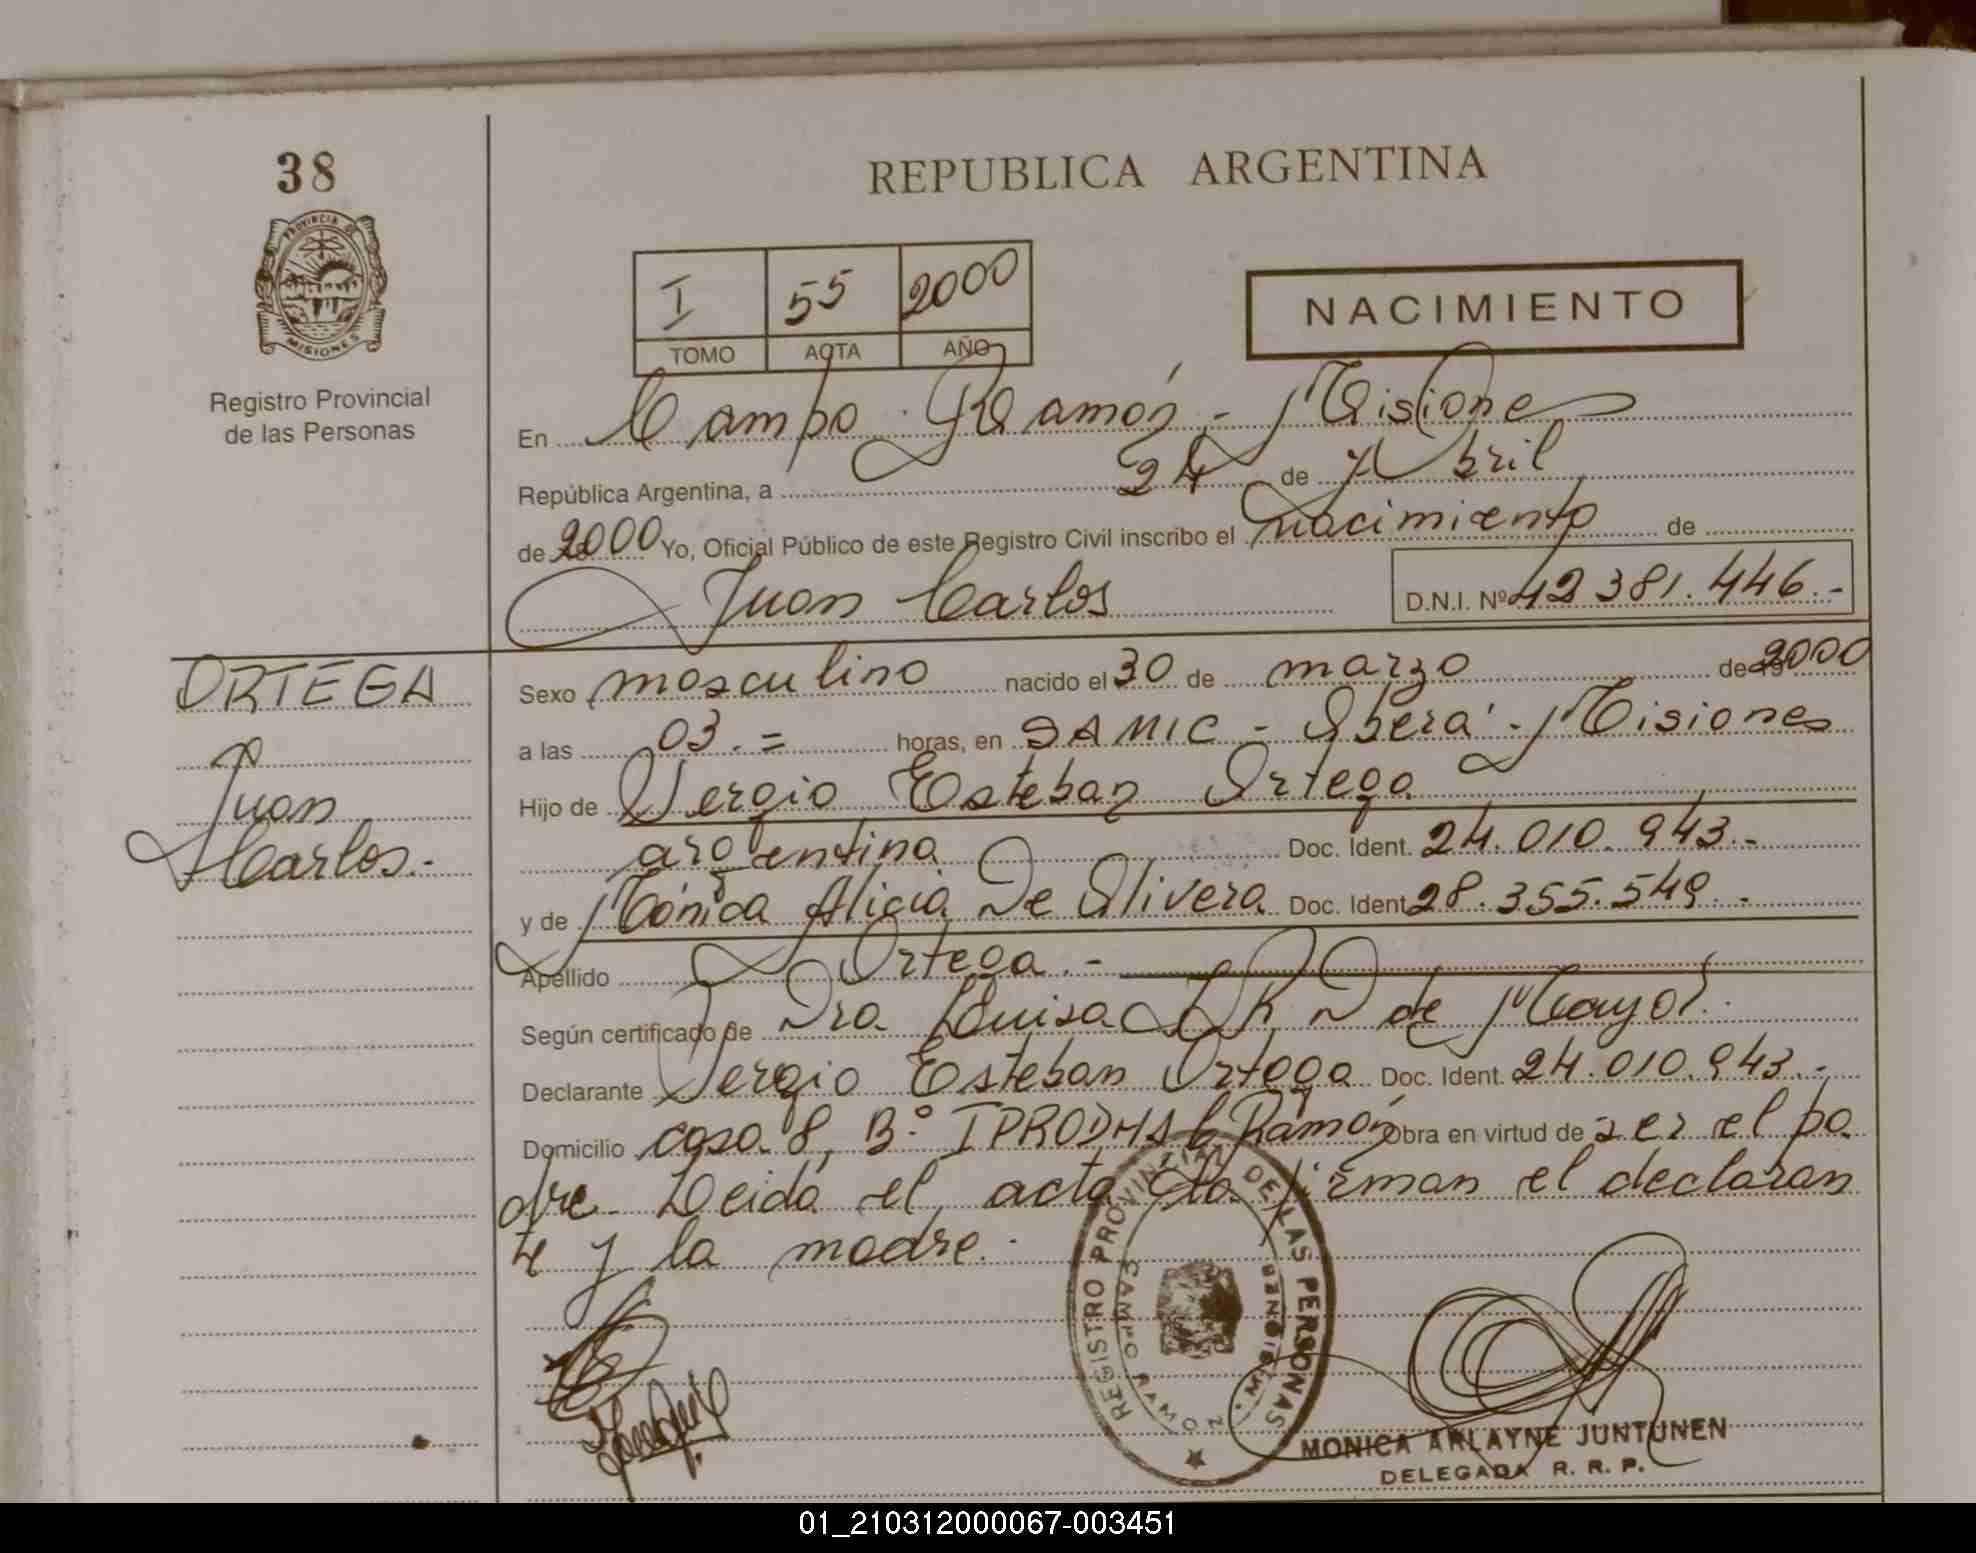 38
PROVINCIA DE
MISIONES
Registro Provincial
de las Personas
REPUBLICA ARGENTINA
I 55 2000
TOMO ACTA AÑO
NACIMIENTO
En Campo Ramón - Misiones
República Argentina, a 24 de Abril
de 2000 Yo, Oficial Público de este Registro Civil inscribo el nacimiento de
Juan Carlos D.N.I. Nº 42 381.446.-
ORTEGA
Juan
Carlos.-
Sexo masculino nacido el 30 de marzo de 19 2000
a las 03.= horas, en SAMIC - Oberá - Misiones
Hijo de Sergio Esteban Ortega
argentina Doc. Ident. 24.010.943.-
y de Mónica Alicia De Olivera Doc. Ident 28.355.549.-
Apellido Ortega.-
Según certificado de Dra. Luisa R N de Mayol.
Declarante Sergio Esteban Ortega Doc. Ident. 24.010.943.-
Domicilio casa 8, Bº IPRODHA C. Ramón Obra en virtud de ser el pa
dre. Leida el acta la firman el declaran
te y la madre.-
REGISTRO PROVINCIAL DE LAS PERSONAS
CAMPO RAMON
MISIONES
MONICA ARLAYNE JUNTUNEN
DELEGADA R. R. P.
01_210312000067-003451